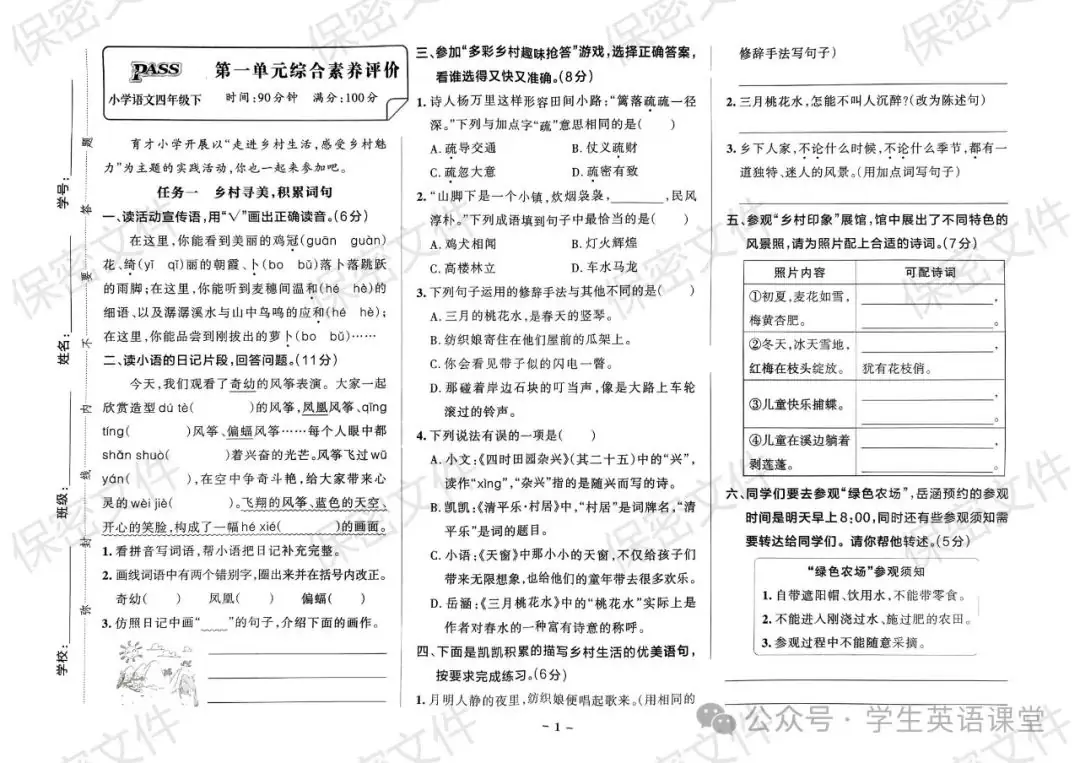 PASS
小学语文四年级下
第一单元综合素养评价
时间:90分钟 满分:100分
学校:
班级:
姓名:
学号:
弥 封 线 内 不 要 答 题
育才小学开展以“走进乡村生活,感受乡村魅
力”为主题的实践活动,你也一起来参加吧。
任务一 乡村寻美,积累词句
一、读活动宣传语,用“√”画出正确读音。(6分)
在这里,你能看到美丽的鸡冠(guān guàn)
花、绮(yǐ qǐ)丽的朝霞、卜(bo bǔ)落卜落跳跃
的雨脚;在这里,你能听到麦穗间温和(hé hè)的
细语、以及潺潺溪水与山中鸟鸣的应和(hé hè);
在这里,你能品尝到刚拔出的萝卜(bo bǔ)……
二、读小语的日记片段,回答问题。(11分)
今天,我们观看了奇幼的风筝表演。大家一起
欣赏造型dú tè( )的风筝,凤凰风筝、qīng
tíng( )风筝、偏蝠风筝……每个人眼中都
shǎn shuò( )着兴奋的光芒。风筝飞过wū
yán( ),在空中争奇斗艳,给大家带来心
灵的wèi jiè( )。飞翔的风筝、蓝色的天空、
开心的笑脸,构成了一幅hé xié( )的画面。
1. 看拼音写词语,帮小语把日记补充完整。
2. 画线词语中有两个错别字,圈出来并在括号内改正。
奇幼( ) 凤凰( ) 偏蝠( )
3. 仿照日记中画“﹏﹏”的句子,介绍下面的画作。
三、参加“多彩乡村趣味抢答”游戏,选择正确答案,
看谁选得又快又准确。(8分)
1. 诗人杨万里这样形容田间小路:“篱落疏疏一径
深。”下列与加点字“疏”意思相同的是( )
A. 疏导交通 B. 仗义疏财
C. 疏忽大意 D. 疏密有致
2. “山脚下是一个小镇,炊烟袅袅,________,民风
淳朴。”下列成语填到句子中最恰当的是( )
A. 鸡犬相闻 B. 灯火辉煌
C. 高楼林立 D. 车水马龙
3. 下列句子运用的修辞手法与其他不同的是( )
A. 三月的桃花水,是春天的竖琴。
B. 纺织娘寄住在他们屋前的瓜架上。
C. 你会看见带子似的闪电一瞥。
D. 那碰着岸边石块的叮当声,像是大路上车轮
滚过的铃声。
4. 下列说法有误的一项是( )
A. 小文:《四时田园杂兴》(其二十五)中的“兴”,
读作“xìng”,“杂兴”指的是随兴而写的诗。
B. 凯凯:《清平乐·村居》中,“村居”是词牌名,“清
平乐”是词的题目。
C. 小语:《天窗》中那小小的天窗,不仅给孩子们
带来无限想象,也给他们的童年带去很多欢乐。
D. 岳涵:《三月桃花水》中的“桃花水”实际上是
作者对春水的一种富有诗意的称呼。
四、下面是凯凯积累的描写乡村生活的优美语句,
按要求完成练习。(6分)
1. 月明人静的夜里,纺织娘便唱起歌来。(用相同的
修辞手法写句子)
2. 三月桃花水,怎能不叫人沉醉?(改为陈述句)
3. 乡下人家,不论什么时候,不论什么季节,都有一
道独特、迷人的风景。(用加点词写句子)
五、参观“乡村印象”展馆,馆中展出了不同特色的
风景照,请为照片配上合适的诗词。(7分)
照片内容 可配诗词
①初夏,麦花如雪,
梅黄杏肥。 , 。
②冬天,冰天雪地,
红梅在枝头绽放。 , 犹有花枝俏。
③儿童快乐捕蝶。 , 。
④儿童在溪边躺着
剥莲蓬。 , 。
六、同学们要去参观“绿色农场”,岳涵预约的参观
时间是明天早上8:00,同时还有些参观须知需
要转达给同学们。请你帮他转述。(5分)
“绿色农场”参观须知
1. 自带遮阳帽、饮用水,不能带零食。
2. 不能进入刚浇过水、施过肥的农田。
3. 参观过程中不能随意采摘。
- 1 -
公众号·学生英语课堂
保密文件